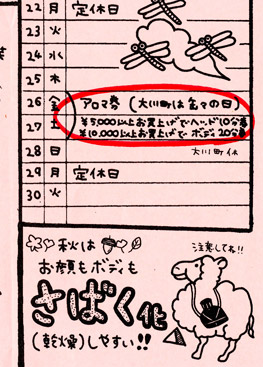 22 月 定休日
23 火
24 水
25 木
26 金 アロマ券 (大川町は缶々の日)
27 土 ¥5,000以上お買上げでヘッド10分券
¥10,000以上お買上げでボディ20分券
28 日 大川町休
29 月 定休日
30 火
秋は
お顔もボディも
さばく化
(乾燥)しやすい!!
注意してね!!